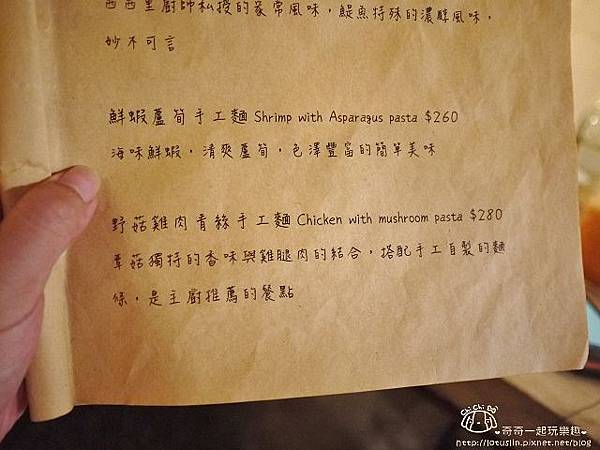 西西里廚師私授的家常風味，鯷魚特殊的濃醇風味，
妙不可言
鮮蝦蘆筍手工麵 Shrimp with Asparagus pasta $260
海味鮮蝦，清爽蘆筍，色澤豐富的簡單美味
野菇雞肉青絲手工麵 Chicken with mushroom pasta $280
蕈菇獨特的香味與雞腿肉的結合，搭配手工自製的麵
條，是主廚推薦的餐點
Chi Chi
奇奇一起玩樂趣
http://lotuslin.pixnet.net/blog